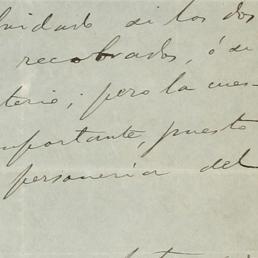 cuidado si los dos
recobrados, ó se
terio; pero la cues-
mportante, puesto
personería del